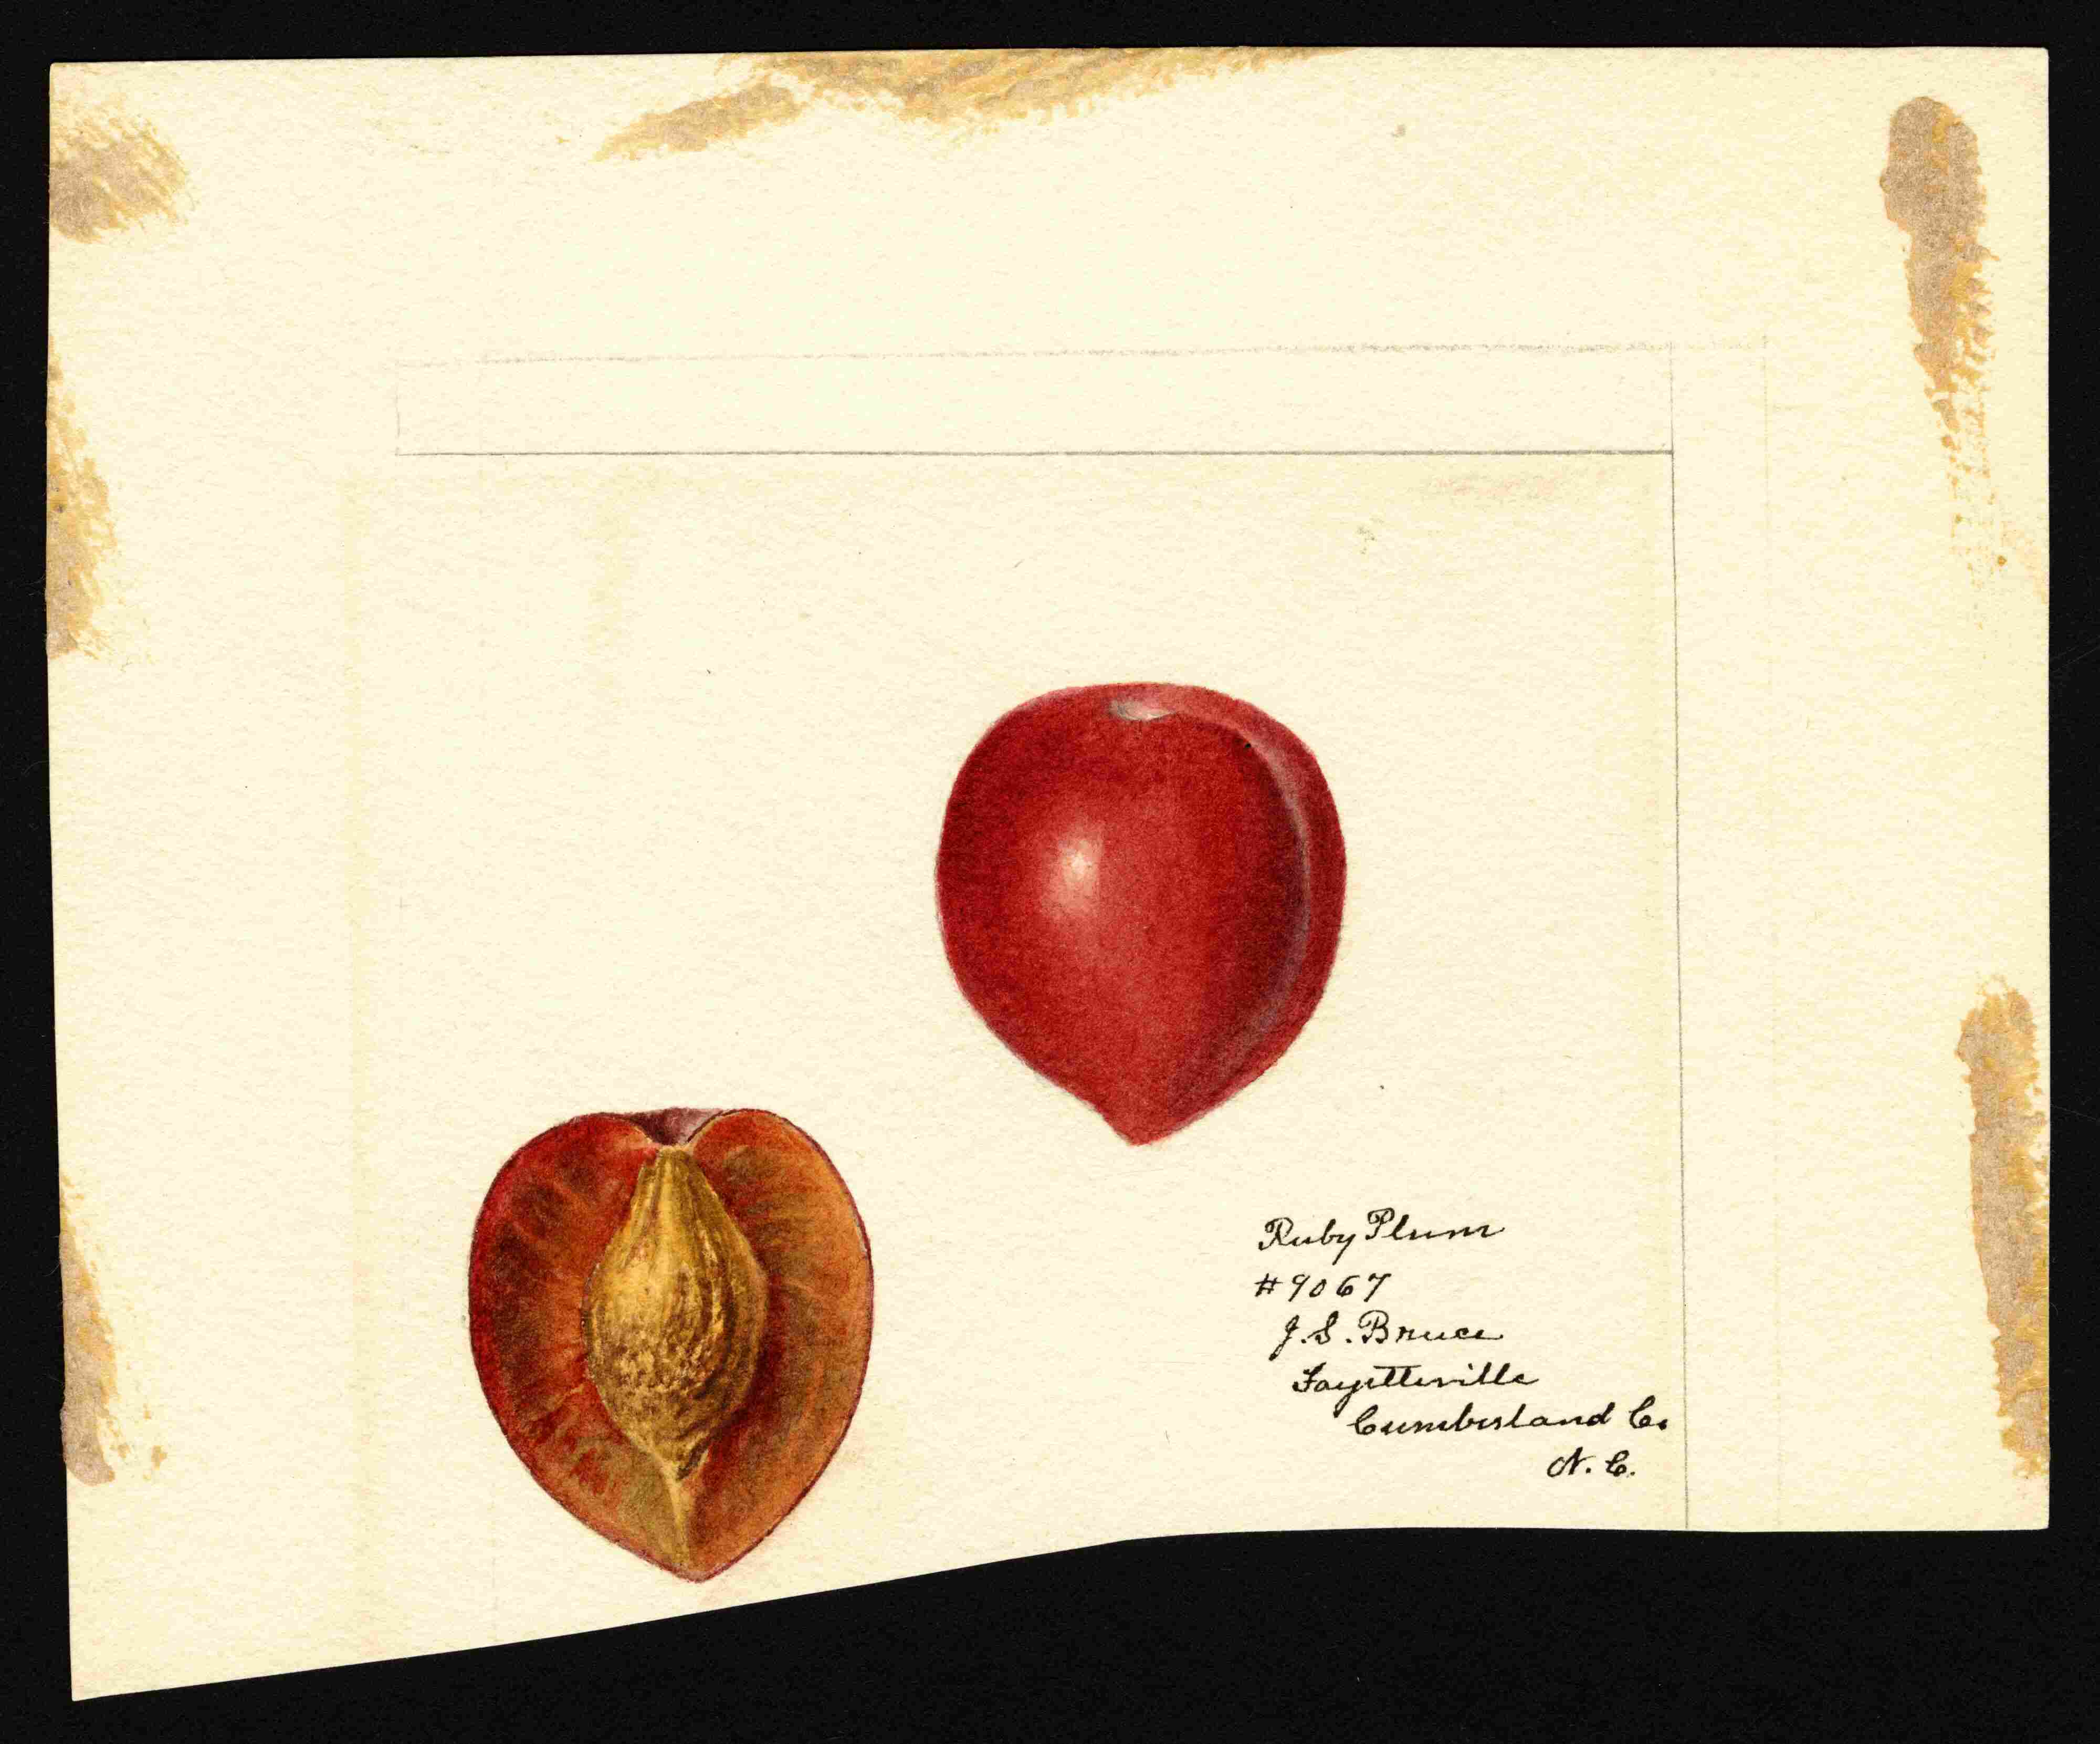 Ruby Plum
#9067
J. S. Bruce
Fayetteville
Cumberland Co.
N. C.